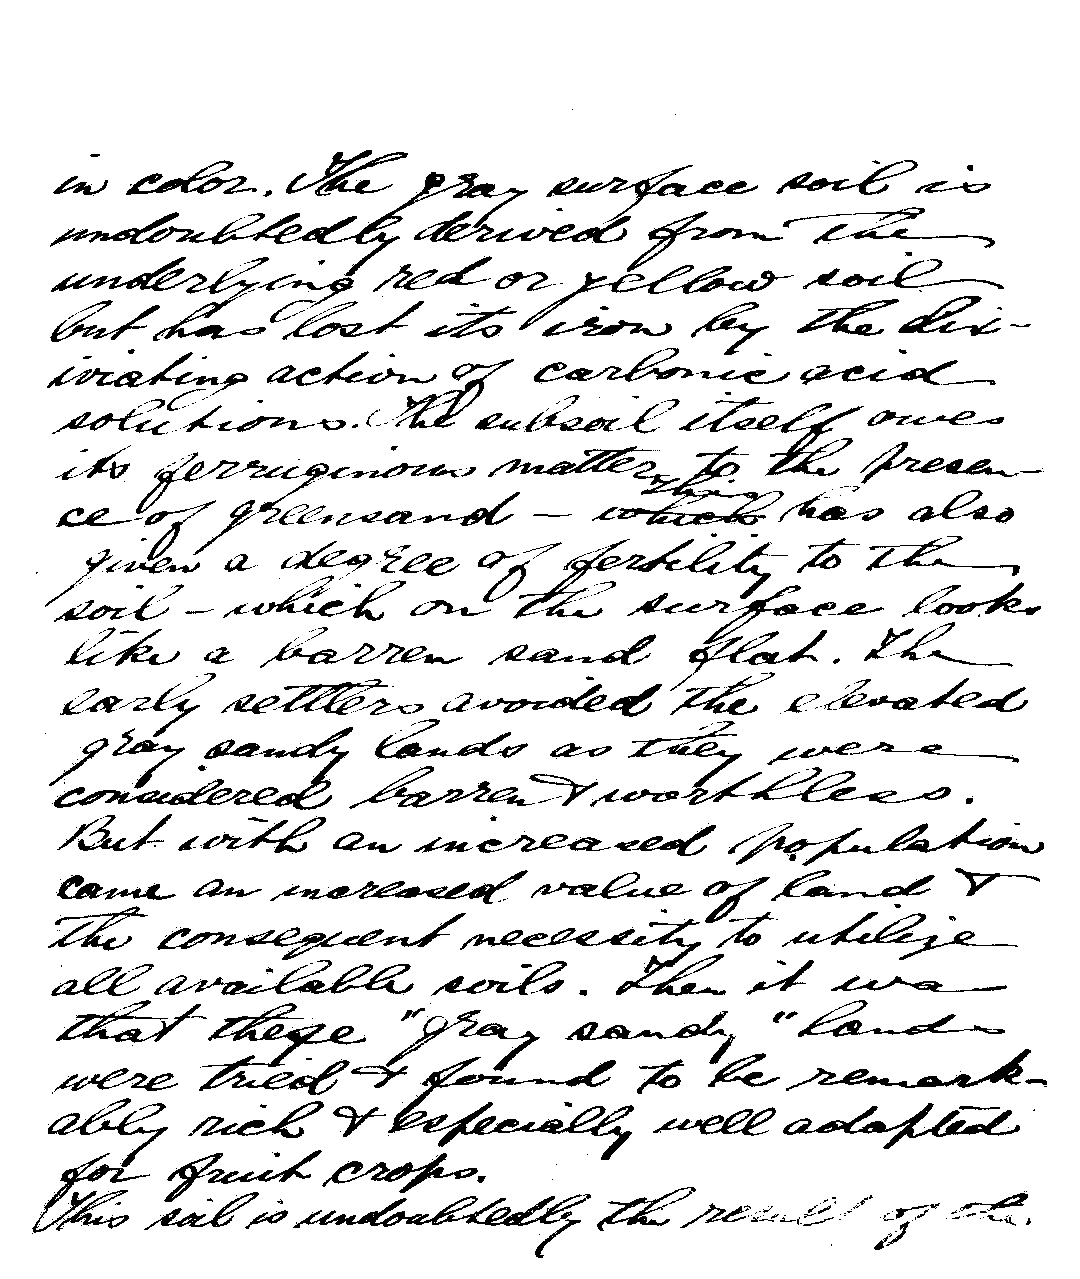 in color. The gray surface soil is
undoubtedly derived from the
underlying red or yellow soil
but has lost its iron by the lix-
iviating action of carbonic acid
solutions. The subsoil itself owes
its ferruginous matter to the presen-
ce of greensand - which this has also
given a degree of fertility to the
soil - which on the surface looks
like a barren sand flat. The
early settlers avoided the elevated
gray sandy lands as they were
considered barren & worthless.
But with an increased population
came an increased value of land &
the consequent necessity to utilize
all available soils. Then it was
that these "gray sandy" lands
were tried & found to be remark-
ably rich & especially well adapted
for fruit crops.
This soil is undoubtedly the result of the